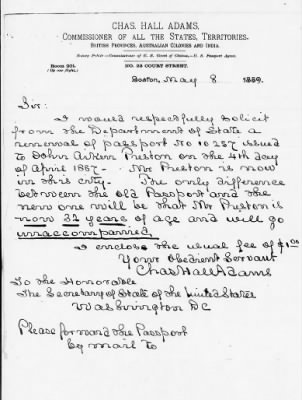 CHAS. HALL ADAMS,
COMMISSIONER OF ALL THE STATES, TERRITORIES,
BRITISH PROVINCES, AUSTRALIAN COLONIES AND INDIA.
Notary Public—Commissioner of U. S. Court of Claims,—U. S. Passport Agent.
ROOM 201. NO. 23 COURT STREET.
(Up one flight.)
Boston, May 8 1889.
Sir:
I would respectfully solicit
from the Department of State a
renewal of passport No 10257 issued
to John Preston on the 4th day
of April 1887– Mr Preston is now
in this city– The only difference
between the old Passport and the
new one will be that Mr Preston is
now 32 years of age and will go
unaccompanied.
I enclose the usual fee of $1.00
Your obedient Servant
Chas Hall Adams
To the Honorable
The Secretary of State of the United States
Washington DC
Please forward the Passport
by mail to